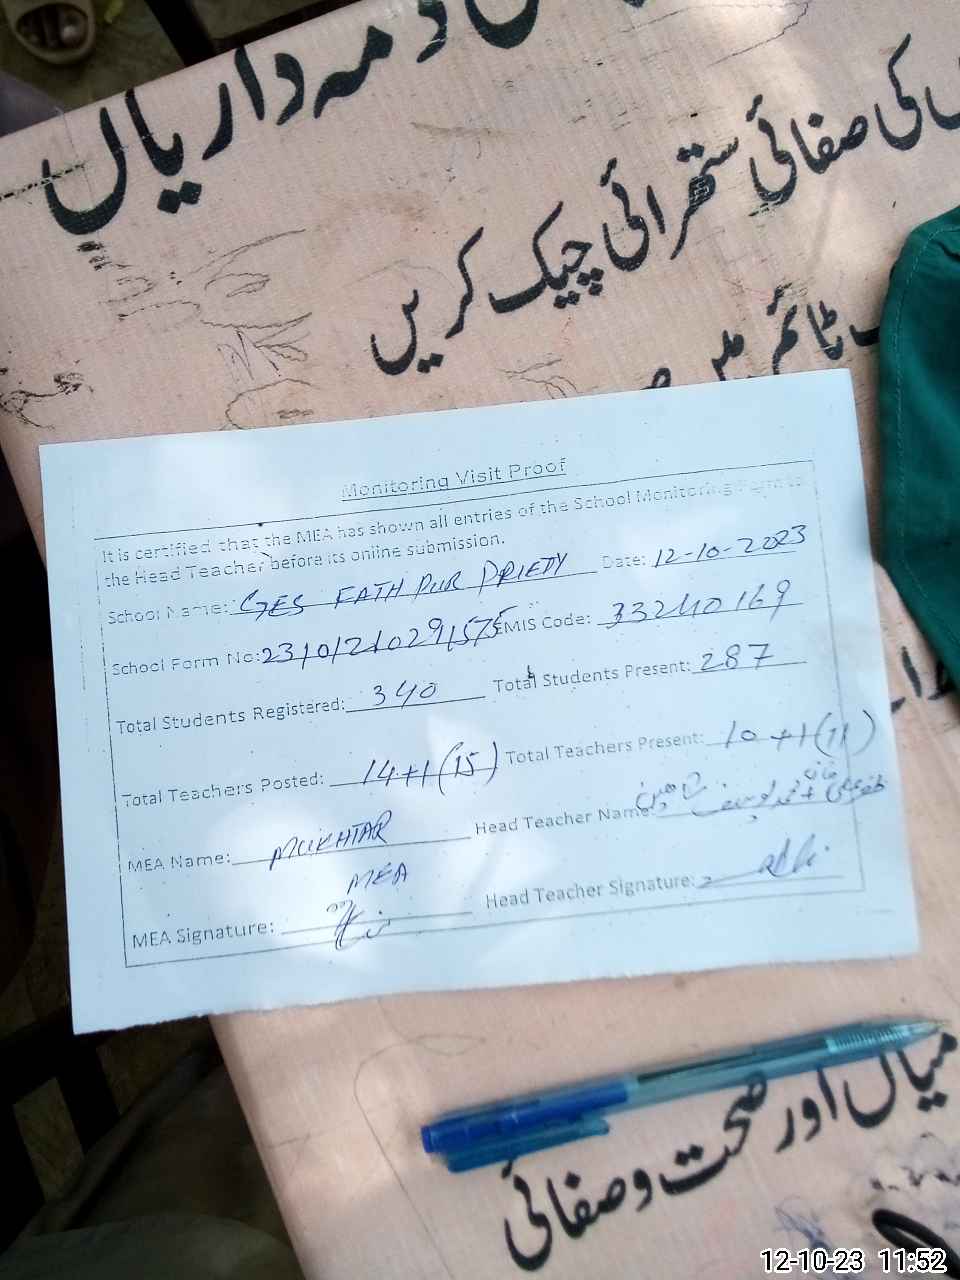 ذمہ داریاں
کی صفائی ستھرائی چیک کریں
ٹائم میں
Monitoring Visit Proof
It is certified that the MEA has shown all entries of the School Monitoring Form to
the Head Teacher before its online submission.
School Name: GES FATH PUR PRIETY Date: 12-10-2023
School Form No: EMIS Code: 33240169
Total Students Registered: 340 Total Students Present: 287
Total Teachers Posted: 14+1(15) Total Teachers Present: 10+1(11)
MEA Name: MUKHTAR Head Teacher Name:
MEA
MEA Signature: Head Teacher Signature:
میاں اور صحت و صفائی
12-10-23 11:52